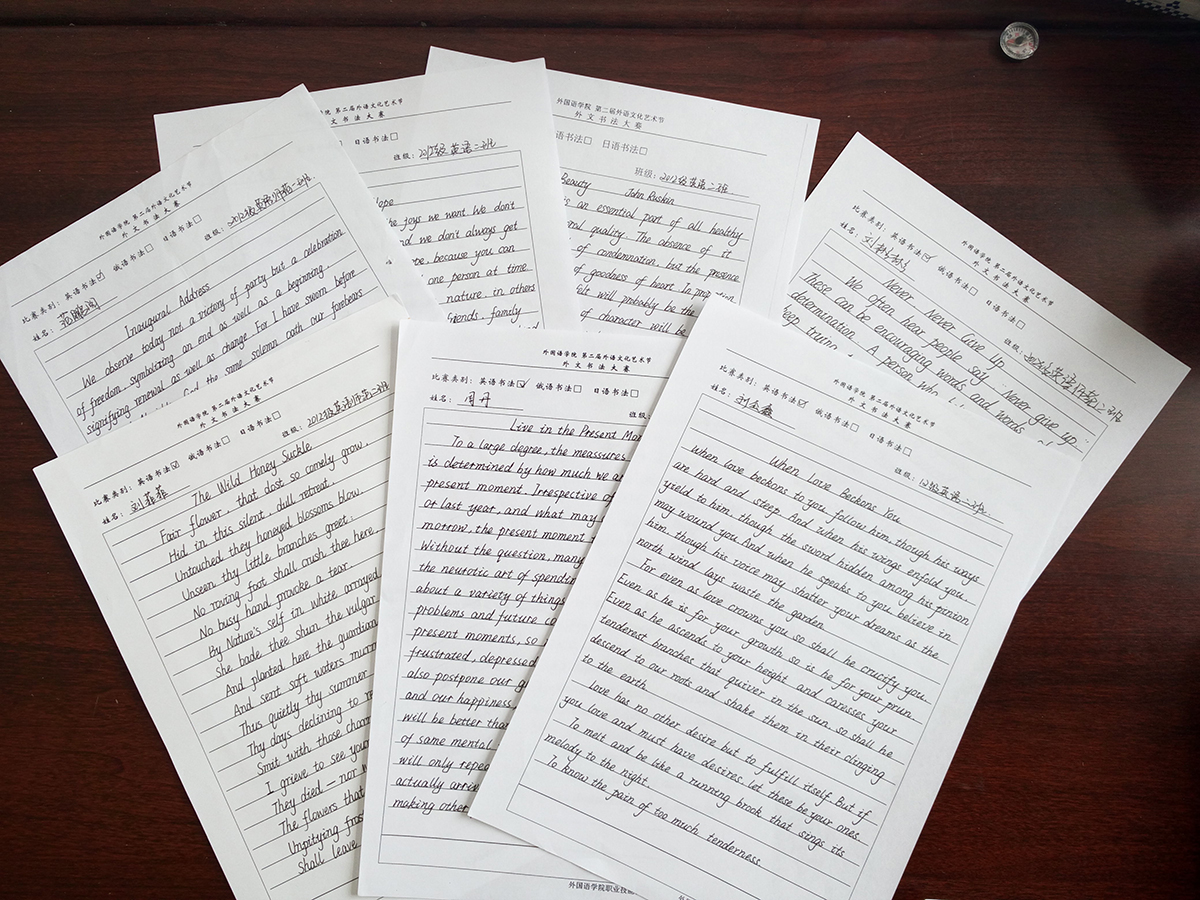 外国语学院 第二届外语文化艺术节
外文书法大赛
比赛类别：英语书法☑ 俄语书法□ 日语书法□
姓名：
班级：2012级英语师范二班
Inaugural Address
We observe today not a victory of party but a celebration
of freedom, symbolizing an end as well as a beginning,
signifying renewal as well as change. For I have sworn before
God the same solemn oath our forebears
第二届外语文化艺术节
文书法大赛
日语书法□
班级：2012级英语二班
the toys we want. We don't
and we don't always get
because you can
one person at time.
nature, in others
friends, family
外国语学院 第二届外语文化艺术节
外文书法大赛
语书法□ 日语书法□
班级：2012级英语二班
Beauty John Ruskin
is an essential part of all healthy
moral quality. The absence of it
of condemnation, but the presence
of goodness of heart. In proportion
felt will probably be the
of character will be
外国语学院 第二届外语文化艺术节
外文书法大赛
比赛类别：英语书法☑ 俄语书法□ 日语书法□
姓名：刘
班级：2012级英语师范二班
Never Never Give Up
We often hear people say "Never give up."
These can be encouraging words and words of
determination. A person who
keep trying
外国语学院 第二届外语文化艺术节
外文书法大赛
比赛类别：英语书法☑ 俄语书法□ 日语书法□
姓名：刘菲菲
班级：2012级英语师范二班
The Wild Honey Suckle
Fair flower, that dost so comely grow
Hid in this silent, dull retreat.
Untouched they honeyed blossoms blow.
Unseen thy little branches greet:
No roving foot shall crush thee here,
No busy hand provoke a tear.
By Nature's self in white arrayed
She bade thee shun the vulgar
And planted here the guardian
And sent soft waters murm
Thus quietly thy summer
Thy days declining to re
Smit with those charm
I grieve to see your
They died — nor
The flowers that
Unpitying fros
Shall leave
外国语学院 第二届外语文化艺术节
外文书法大赛
比赛类别：英语书法☑ 俄语书法□ 日语书法□
姓名：周丹
Live in the Present Mom
To a large degree, the meassures
is determined by how much we ar
present moment. Irrespective of
or last year, and what may
morrow, the present moment
Without the question, many
the neurotic art of spendin
about a variety of things
problems and future co
present moments, so
frustrated, depressed
also postpone our g
and our happiness
will be better than
of same mental
will only repea
actually arriv
making other
外国语学院职业技
外国语学院 第二届外语文化艺术节
外文书法大赛
比赛类别：英语书法☑ 俄语书法□ 日语书法□
姓名：刘
班级：12级英语二班
When Love Beckons You
When love beckons to you follow him, though his ways
are hard and steep. And when his wings enfold you,
yield to him, though the sword hidden among his pinion
may wound you. And when he speaks to you believe in
him, though his voice may shatter your dreams as the
north wind lays waste the garden.
For even as love crowns you so shall he crucify you.
Even as he is for your growth so is he for your prun.
Even as he ascends to your height and caresses your
tenderest branches that quiver in the sun, so shall he
descend to our roots and shake them in their clinging
to the earth.
Love has no other desire but to fulfill itself. But if
you love and must have desires, let these be your ones.
To melt and be like a running brook that sings its
melody to the night.
To know the pain of too much tenderness.